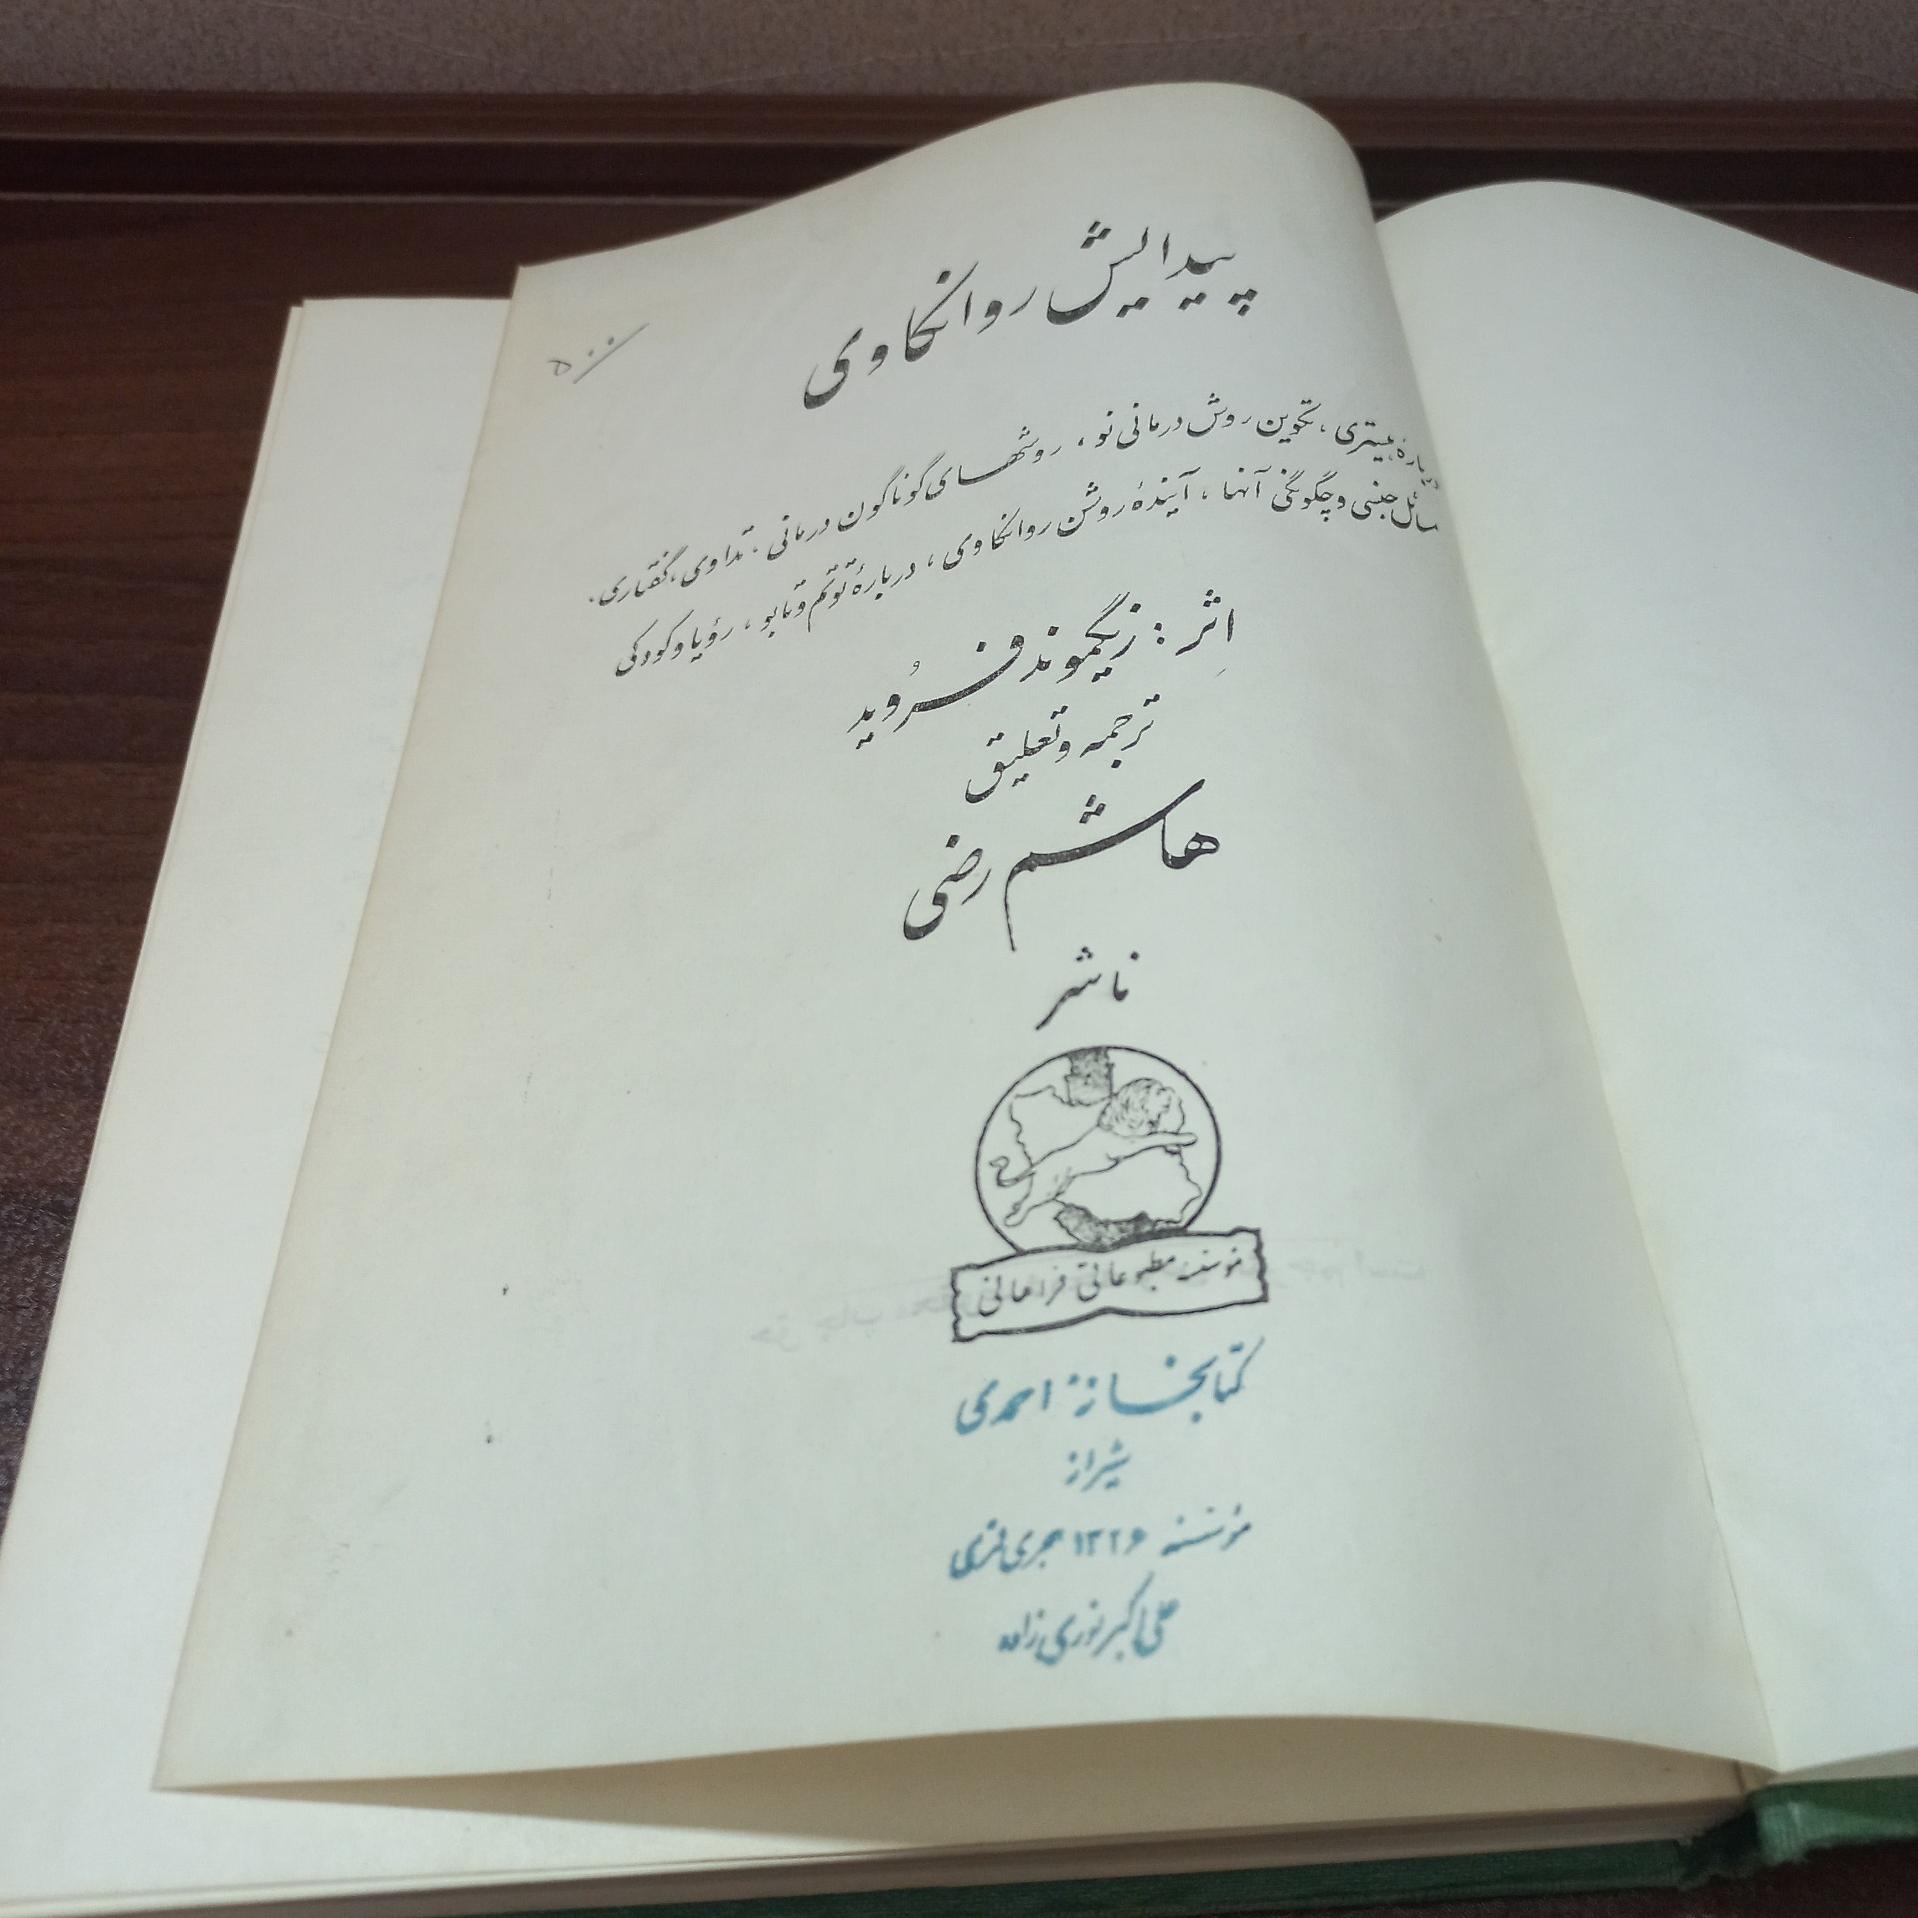 پیدایش روانکاوی
۵۰۰
دربارهٔ هیستری، تکوین روش درمانی نو، روشهای گوناگون درمانی. تداوی، گفتاری.
مسائل جنسی و چگونگی آنها، آیندهٔ روشن روانکاوی، دربارهٔ توتم و تابو، رؤیا و کودکی
اثر: زیگموند فروید
ترجمه و تعلیق
هاشم رضی
ناشر
مؤسسه مطبوعاتی فراهانی
کتابخانه احمدی
شیراز
مؤسسه ۱۳۲۶ هجری قمری
علی اکبر نوری زاده